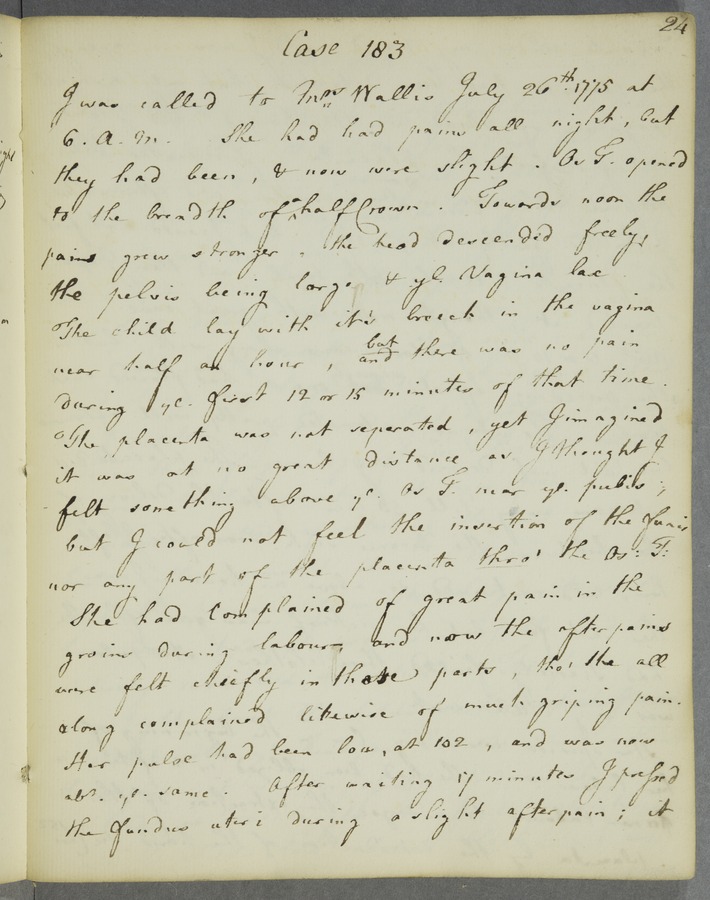 24
Case 183
I was called to Mrs Wallis July 26th. 1775 at
6. A. M. She had had pains all night, but
they had been, & now were slight. Os T. opened
to the breadth of half Crown. Towards noon the
pains grew stronger. the head descended freely,
the pelvis being large & ye. Vagina lax
The child lay with it's breech in the vagina
near half an hour, but and there was no pain
during ye. first 12 or 15 minutes of that time.
The placenta was not separated, yet I imagined
it was at no great distance as I thought I
felt something above ye. Os T. near ye. pubis;
but I could not feel the insertion of the funis
nor any part of the placenta thro' the Os: T:
She had complained of great pain in the
groins during labour, and now the afterpains
were felt chiefly in those parts, tho' she all
along complained likewise of much griping pain.
Her pulse had been low, at 102, and was now
abt. ye. same. After waiting 17 minutes I pressed
the fundus uteri during a slight afterpain; it